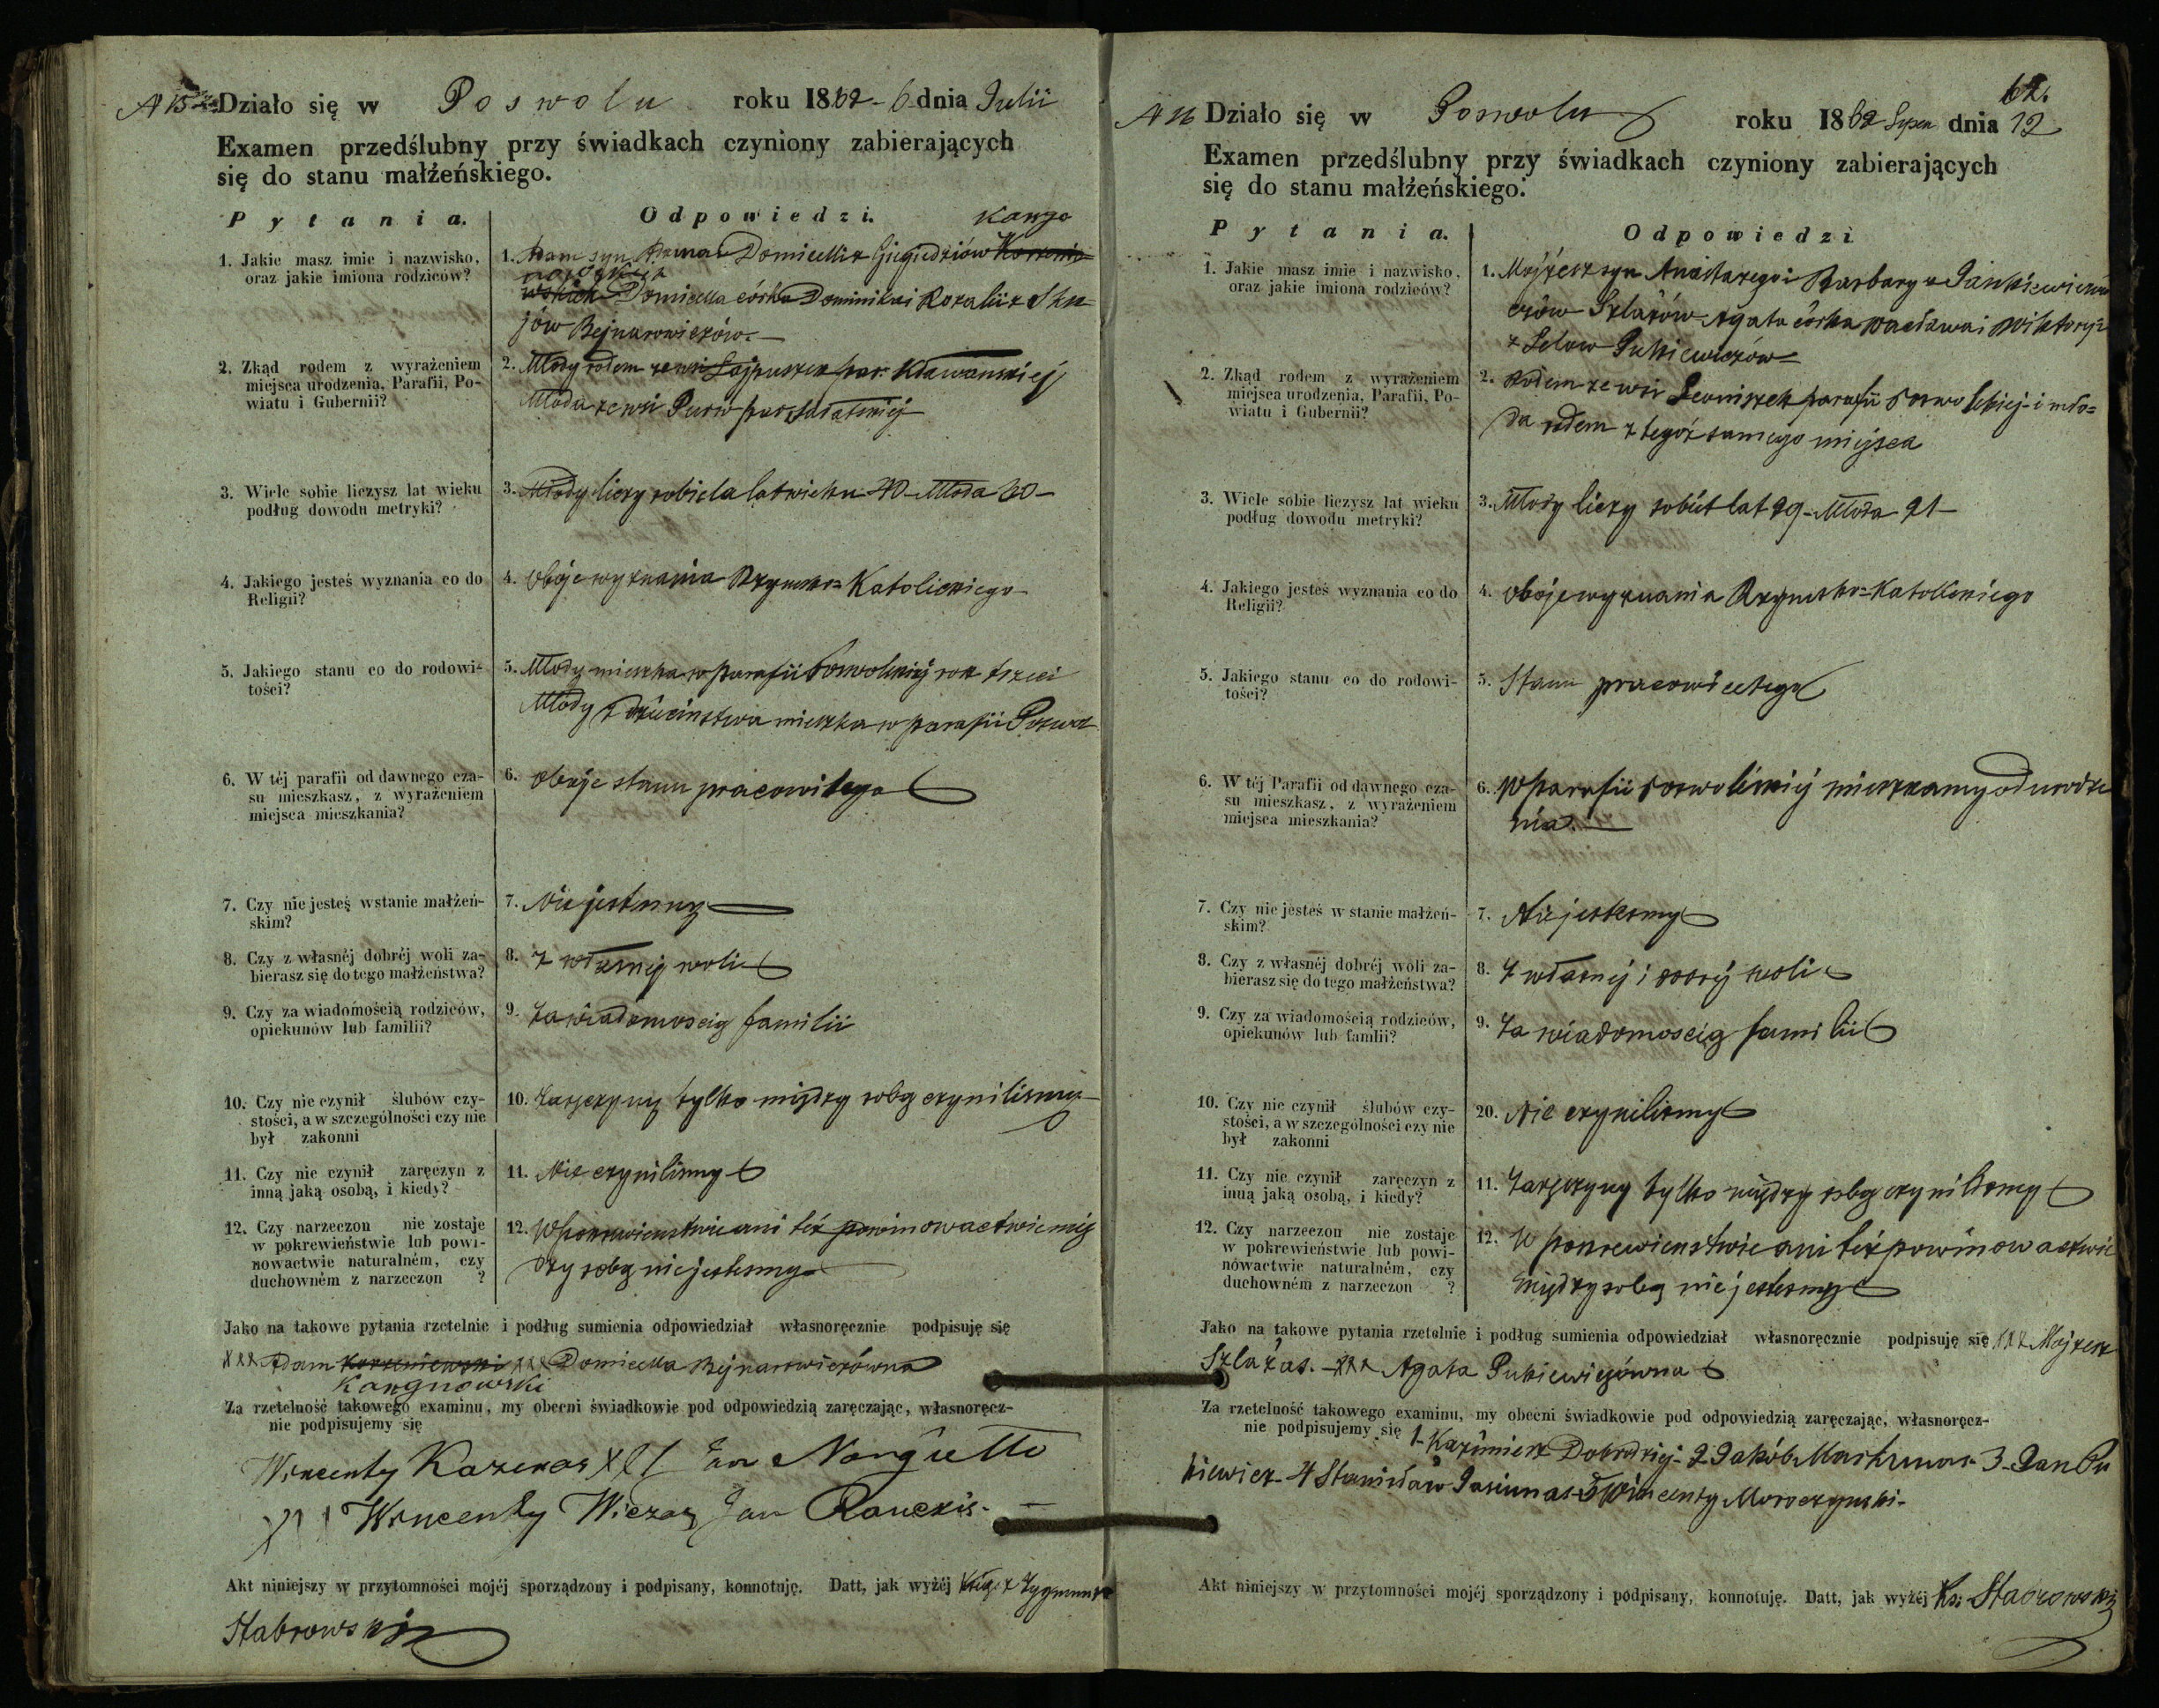 Działo się w Poswolu roku 1862 - 6 dnia Julii
Examen przedślubny przy świadkach czyniony zabierających
się do stanu małżeńskiego.
Pytania.
Odpowiedzi.
1. Jakie masz imie i nazwisko,
oraz jakie imiona rodziców?
1. Adam syn Domicelli z
Domicella córka Dominika i Rozalii z
jów Bejnarowiczów
2. Zkąd rodem z wyrażeniem
miejsca urodzenia, Parafii, Po-
wiatu i Gubernii?
2. Młody rodem ze wsi par.
Młoda ze wsi
3. Wiele sobie liczysz lat wieku
podług dowodu metryki?
3. Młody liczy sobie lat wieku 40 - Młoda 30 -
4. Jakiego jesteś wyznania co do
Religii?
4. Oboje wyznania Rzymsko= Katolickiego
5. Jakiego stanu co do rodowi-
tości?
5. Młody mieszka w parafii Poswolskiej rok trzeci
Młody z dzieciństwa mieszka w parafii
6. W téj parafii od dawnego cza-
su mieszkasz, z wyrażeniem
miejsca mieszkania?
6. Oboje stanu pracowitego
7. Czy nie jesteś w stanie małżeń-
skim?
7. Nie jestesmy
8. Czy z własnéj dobréj woli za-
bierasz się do tego małżeństwa?
8. Z własnej woli
9. Czy za wiadomością rodziców,
opiekunów lub familii?
9. Za wiadomoscią familii
10. Czy nie czynił ślubów czy-
stości, a w szczególności czy nie
był zakonni
10. Zaręczyny tylko między sobą czynilismy
11. Czy nie czynił zaręczyn z
inną jaką osobą, i kiedy?
11. Nie czynilismy
12. Czy narzeczon nie zostaje
w pokrewieństwie lub powi-
nowactwie naturalném, czy
duchowném z narzeczon ?
12. W pokrewienstwie ani też powinowactwie mię
dzy sobą nie jestesmy
Jako na takowe pytania rzetelnie i podług sumienia odpowiedział własnoręcznie podpisuję się
xxx Adam Korzeniewski xxx Domicella Bejnarowiczówna
Kangnowski
Za rzetelność takowego examinu, my obecni świadkowie pod odpowiedzią zaręczając, własnoręcz-
nie podpisujemy się
Wincenty Jan
Wincenty Jan
Akt niniejszy w przytomności mojéj sporządzony i podpisany, konnotuję. Datt, jak wyżéj Xiądz Zygmunt
Stabrowski
62.
Działo się w Poswolu roku 1862 dnia 12
Examen przedślubny przy świadkach czyniony zabierających
się do stanu małżeńskiego.
Pytania.
Odpowiedzi
1. Jakie masz imie i nazwisko,
oraz jakie imiona rodziców?
1. Mojżesz syn Anastazego i Barbary z
Szlażów Agata córka Wacława i Wiktoryi
Pukiewiczów
2. Zkąd rodem z wyrażeniem
miejsca urodzenia, Parafii, Po-
wiatu i Gubernii?
2. Rodem ze wsi parafii Poswolskiej - i mło=
da rodem z tegoż samego miejsca
3. Wiele sobie liczysz lat wieku
podług dowodu metryki?
3. Młody liczy sobie lat 29 - Młoda 21 -
4. Jakiego jesteś wyznania co do
Religii?
4. Oboje wyznania Rzymsko=Katolickiego
5. Jakiego stanu co do rodowi-
tości?
5. Stanu pracowitego
6. W téj Parafii od dawnego cza-
su mieszkasz, z wyrażeniem
miejsca mieszkania?
6. W parafii Poswolskiej mieszkamy od urodze
nia.
7. Czy nie jesteś w stanie małżeń-
skim?
7. Nie jestesmy
8. Czy z własnéj dobréj woli za-
bierasz się do tego małżeństwa?
8. Z własnej i dobrej woli
9. Czy za wiadomością rodziców,
opiekunów lub familii?
9. Za wiadomoscią familii
10. Czy nie czynił ślubów czy-
stości, a w szczególności czy nie
był zakonni
20. Nie czynilismy
11. Czy nie czynił zaręczyn z
inną jaką osobą, i kiedy?
11. Zaręczyny tylko między sobą czynilismy
12. Czy narzeczon nie zostaje
w pokrewieństwie lub powi-
nowactwie naturalném, czy
duchowném z narzeczon ?
12. W pokrewienstwie ani też powinowactwie
między sobą nie jestesmy
Jako na takowe pytania rzetelnie i podług sumienia odpowiedział własnoręcznie podpisuję się xxx Mojżesz
Szlażas. - xxx Agata Pukiewiczówna
Za rzetelność takowego examinu, my obecni świadkowie pod odpowiedzią zaręczając, własnoręcz-
nie podpisujemy się 1 - Kazimierz Dobrodziej - 2 Jakób 3 - Jan Pu
kiewicz - 4 Stanisław Jasiunas - 5 Wincenty
Akt niniejszy w przytomności mojéj sporządzony i podpisany, konnotuję. Datt, jak wyżéj Ks: Stabrowski